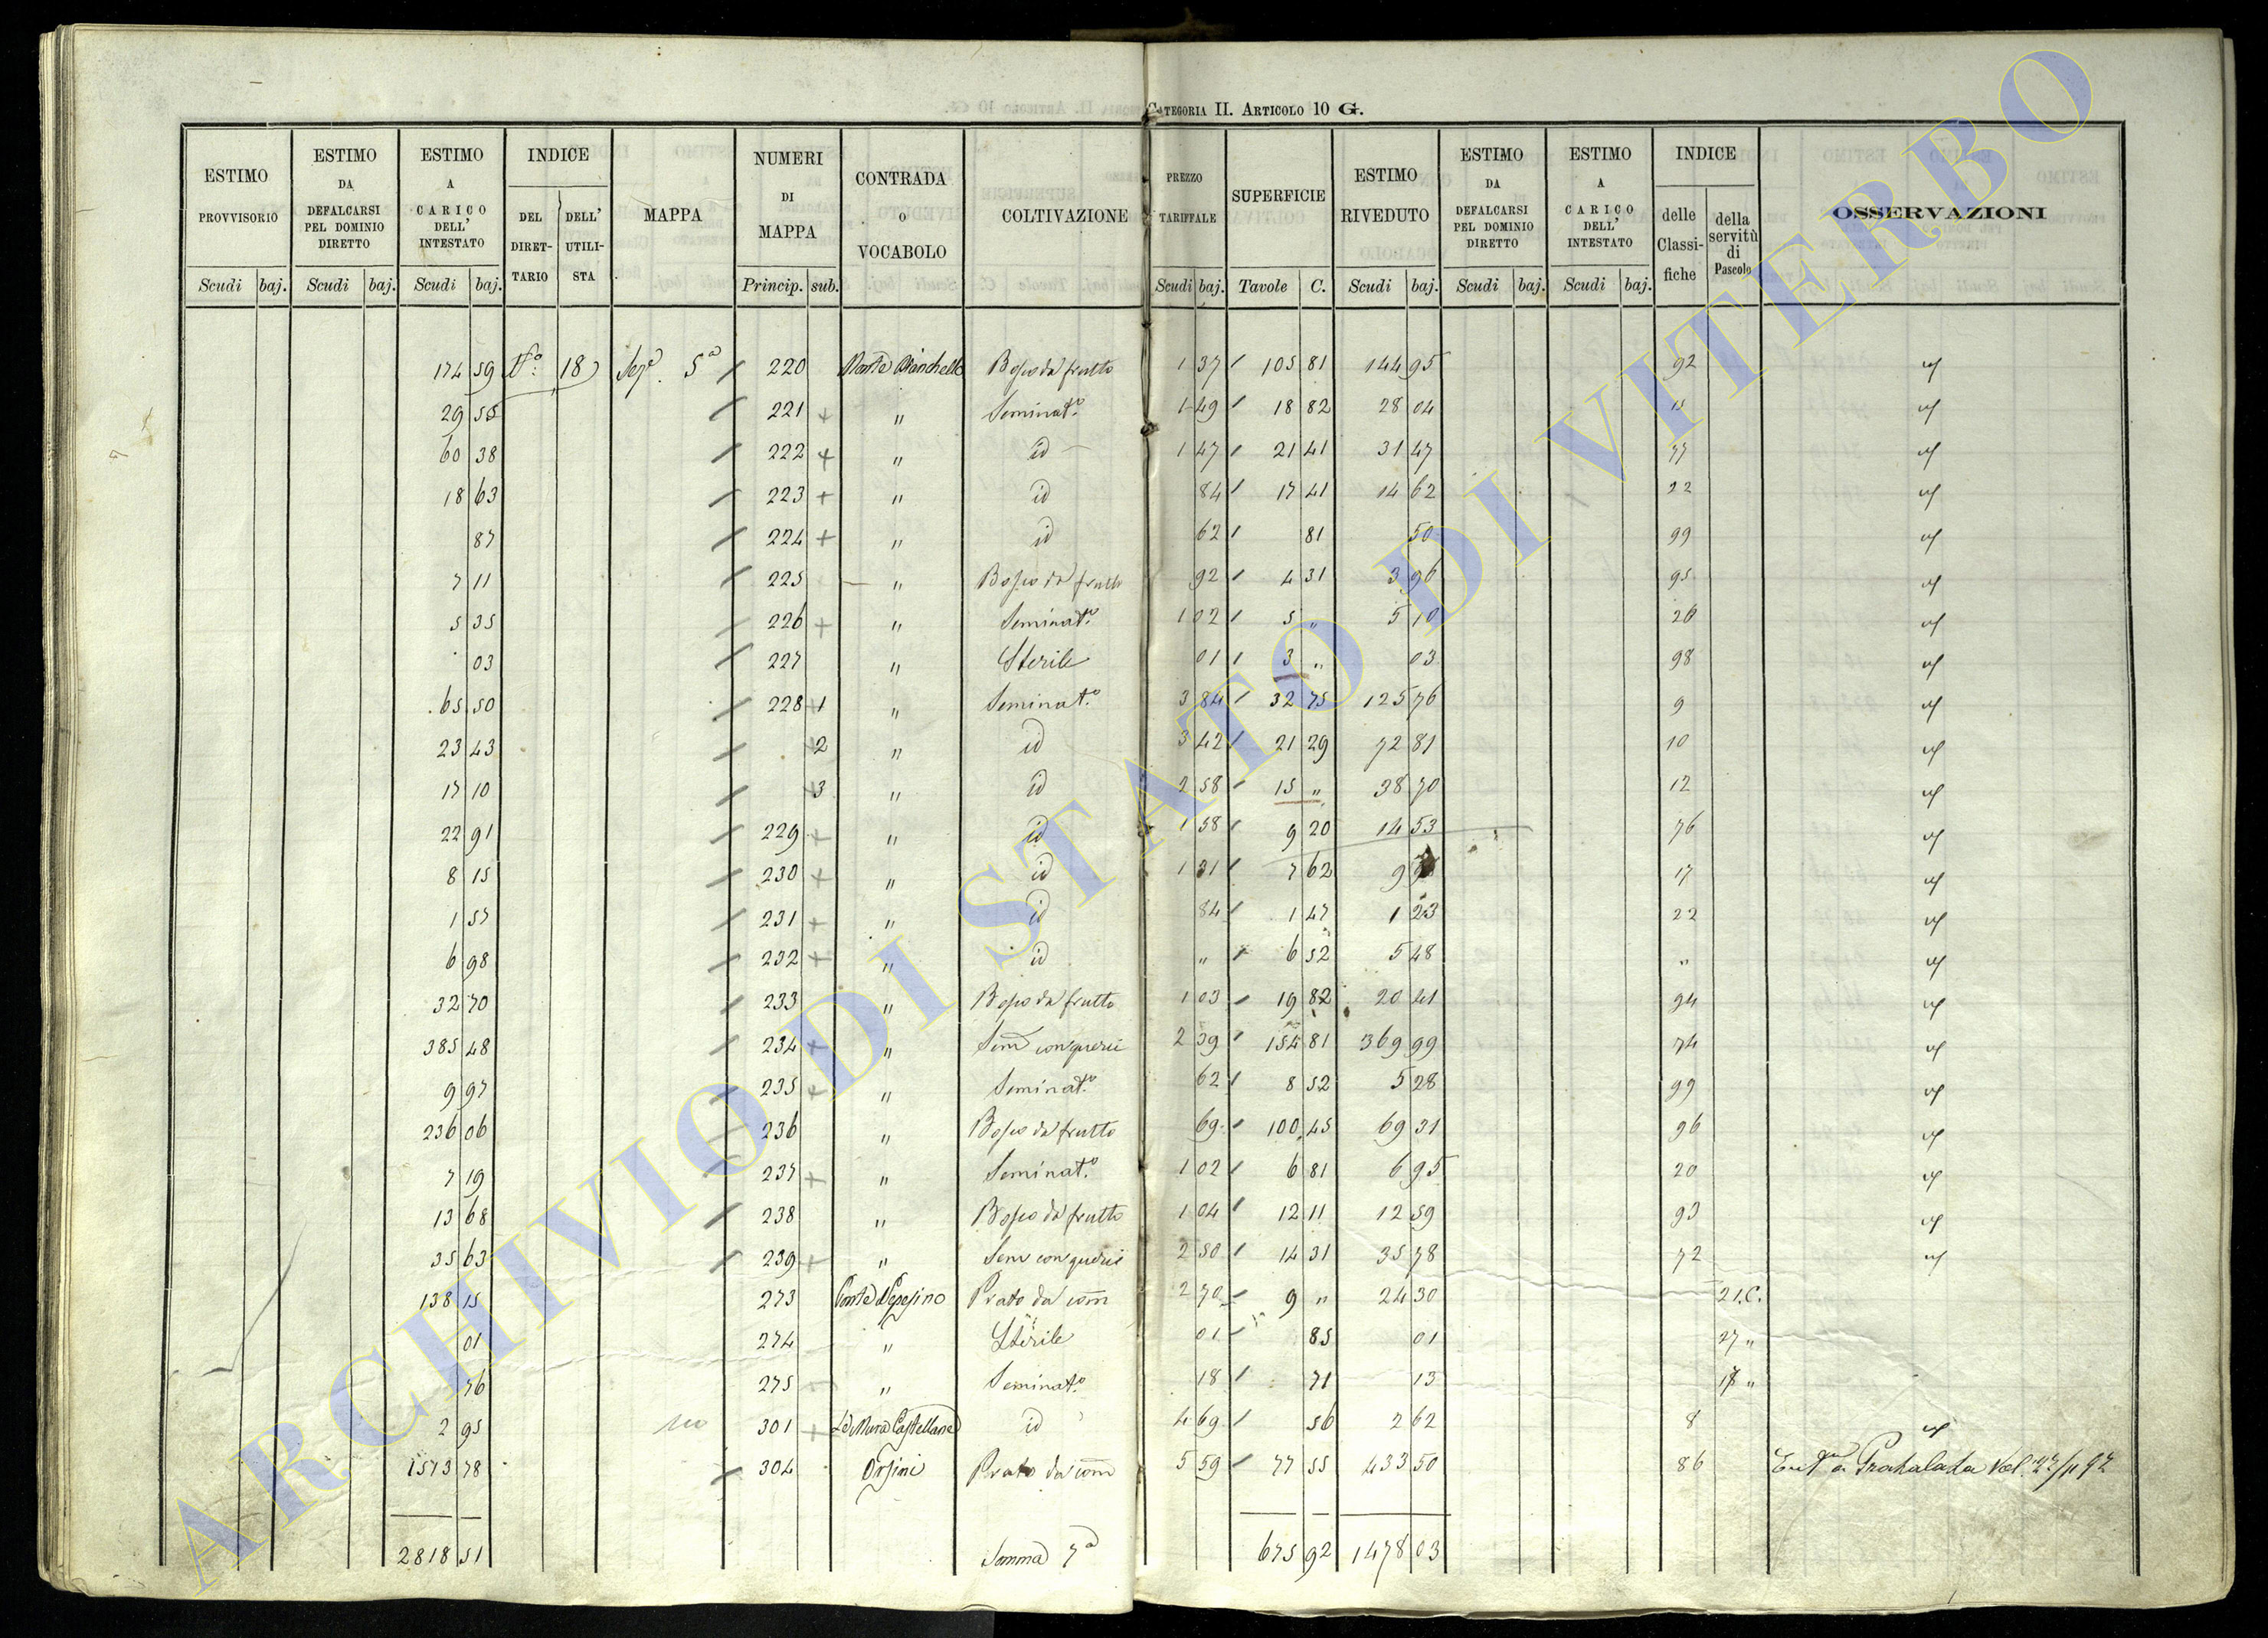 CATEGORIA II. ARTICOLO 10 G.
ESTIMO PROVVISORIO Scudi baj.
ESTIMO DA DEFALCARSI PEL DOMINIO DIRETTO Scudi baj.
ESTIMO A CARICO DELL' INTESTATO Scudi baj.
INDICE DEL DIRET-TARIO DELL' UTILI-STA
MAPPA
NUMERI DI MAPPA Princip. sub.
CONTRADA O VOCABOLO
COLTIVAZIONE
PREZZO TARIFFALE Scudi baj.
SUPERFICIE Tavole C.
ESTIMO RIVEDUTO Scudi baj.
ESTIMO DA DEFALCARSI PEL DOMINIO DIRETTO Scudi baj.
ESTIMO A CARICO DELL' INTESTATO Scudi baj.
INDICE delle Classi-fiche della servitù di Pascolo
OSSERVAZIONI
174 59 18 Sez.e 5a 220 Monte Bosco da frutto 1 37 105 81 144 95 92
29 55 221 + " Seminat.o 1 49 18 82 28 04 15
60 38 222 + " id 1 47 21 41 31 47 77
18 63 223 + " id 84 17 41 14 62 22
87 224 + " id 62 81 50 99
7 11 225 " Bosco da frutto 92 4 31 3 96 95
5 35 226 + " Seminat.o 1 02 5 " 5 10 20
03 227 " Sterile 01 3 " 03 98
65 50 228 1 " Seminat.o 3 84 32 75 125 76 9
23 43 2 " id 3 42 21 29 72 81 10
17 10 3 " id 2 58 15 " 38 70 12
22 91 229 + " id 1 58 9 20 14 53 76
8 15 230 + " id 1 31 7 62 9 17
1 57 231 + " id 84 1 47 1 23 22
6 98 232 + " id " 6 52 5 48 "
32 70 233 " Bosco da frutto 1 03 19 82 20 41 94
385 48 234 + " Sem con querci 2 39 154 81 369 99 74
9 97 235 + " Seminat.o 62 8 52 5 28 99
236 06 236 " Bosco da frutto 69 100 45 69 31 96
7 19 237 + " Seminat.o 1 02 6 81 6 95 20
13 68 238 " Bosco da frutto 1 04 12 11 12 59 93
35 63 239 + " Sem con querci 2 50 14 31 35 78 72
138 15 273 Prato da com 2 70 9 " 24 30 21.C.
01 274 " Sterile 01 85 01 27 "
76 275 " Seminat.o 18 71 13 18 "
2 95 301 + Le Mura Castellane id 4 69 56 2 62 8
1573 78 304 Orsini Prato da com 5 59 77 55 433 50 86
2818 51 Somma 7a 675 92 1478 03
ARCHIVIO DI STATO DI VITERBO